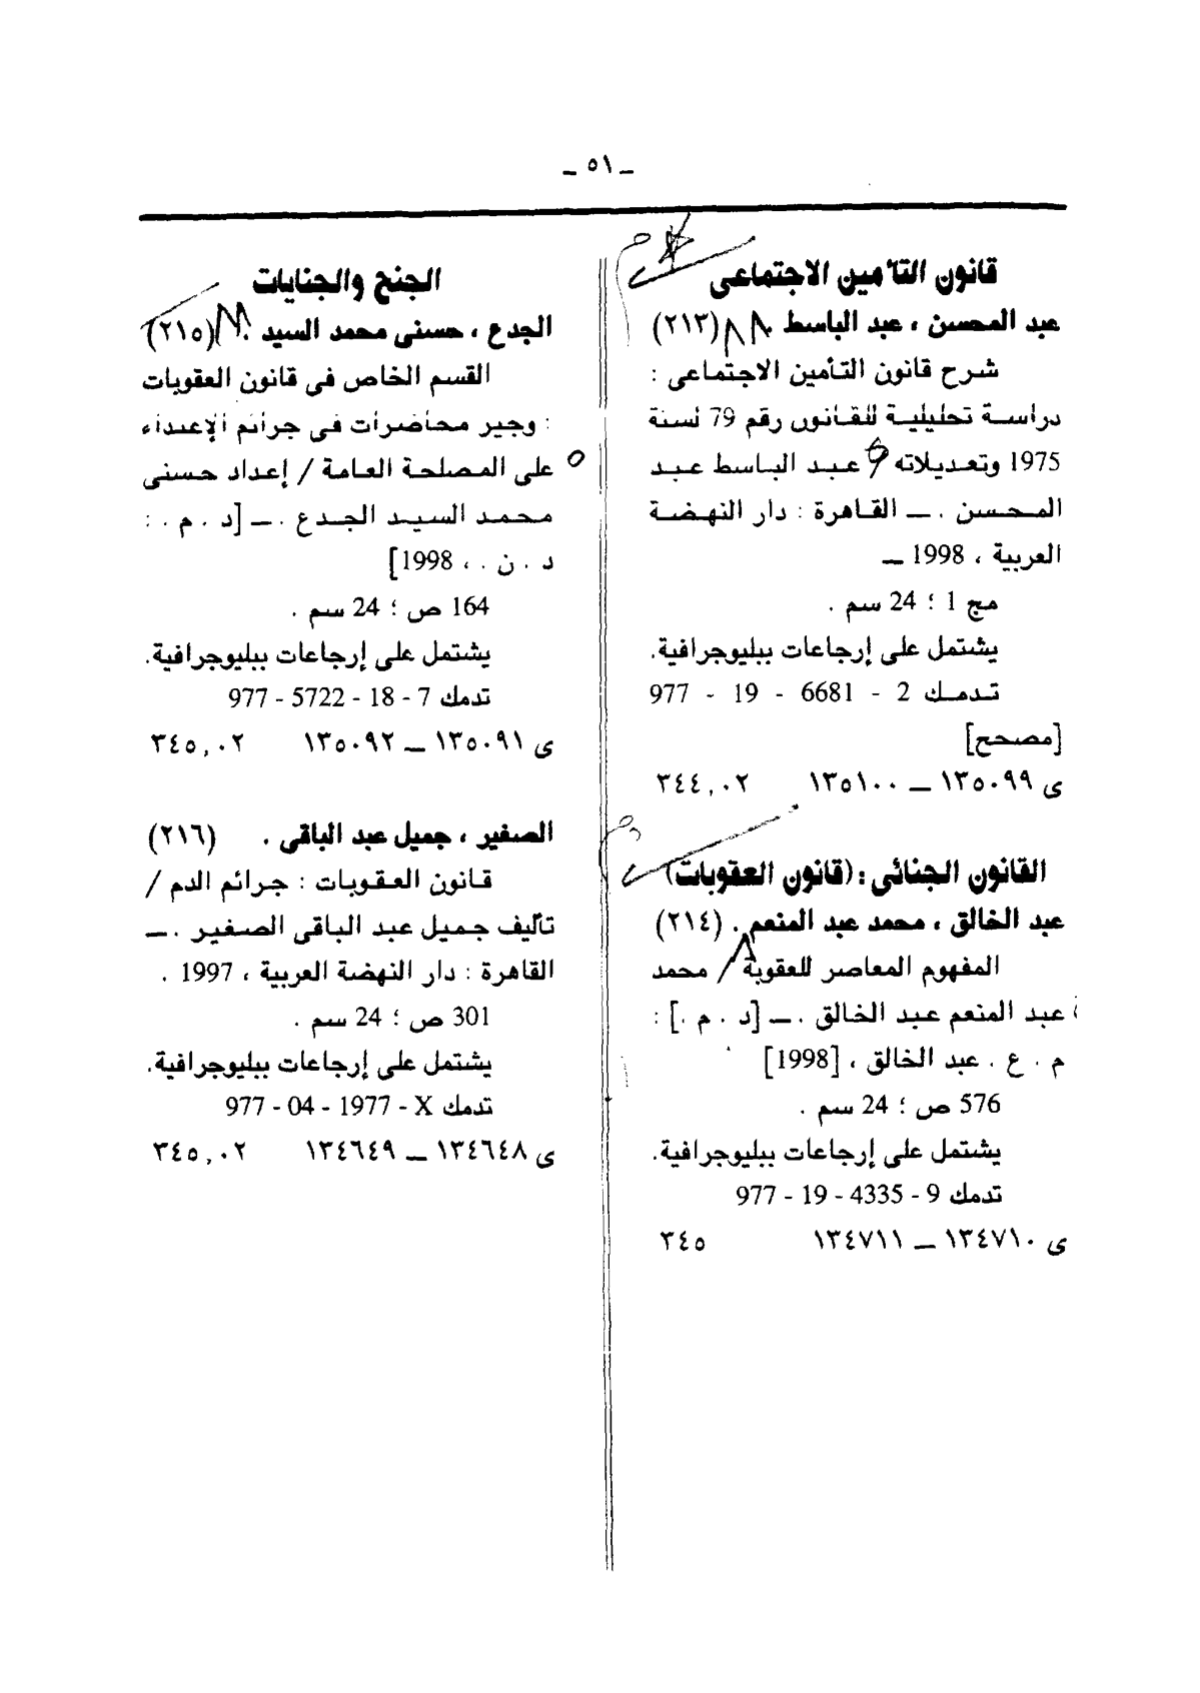 ـ ٥١ ـ
قانون التأمين الاجتماعى
عبد المحسن ، عبد الباسط . (٢١٣)
شرح قانون التأمين الاجتماعى :
دراسة تحليلية للقانون رقم 79 لسنة
1975 وتعديلاته / عبد الباسط عبد
المحسن . ـ القاهرة : دار النهضة
العربية ، 1998 ـ
مج 1 ؛ 24 سم .
يشتمل على إرجاعات ببليوجرافية.
تدمك 2 - 6681 - 19 - 977
[مصحح]
ى ١٣٥٠٩٩ ـ ١٣٥١٠٠ ٣٤٤,٠٢
القانون الجنائى : (قانون العقوبات)
عبد الخالق ، محمد عبد المنعم . (٢١٤)
المفهوم المعاصر للعقوبة / محمد
عبد المنعم عبد الخالق . ـ [د . م .] :
م . ع . عبد الخالق ، [1998]
576 ص ؛ 24 سم .
يشتمل على إرجاعات ببليوجرافية.
تدمك 9 - 4335 - 19 - 977
ى ١٣٤٧١٠ ـ ١٣٤٧١١ ٣٤٥
الجنح والجنايات
الجدع ، حسنى محمد السيد . (٢١٥)
القسم الخاص فى قانون العقوبات
: وجير محاضرات فى جرائم الإعتداء
على المصلحة العامة / إعداد حسنى
محمد السيد الجدع . ـ [د . م . :
د . ن . ، 1998]
164 ص ؛ 24 سم .
يشتمل على إرجاعات ببليوجرافية.
تدمك 7 - 18 - 5722 - 977
ى ١٣٥٠٩١ ـ ١٣٥٠٩٢ ٣٤٥,٠٢
الصغير ، جميل عبد الباقى . (٢١٦)
قانون العقوبات : جرائم الدم /
تأليف جميل عبد الباقى الصغير . ـ
القاهرة : دار النهضة العربية ، 1997 .
301 ص ؛ 24 سم .
يشتمل على إرجاعات ببليوجرافية.
تدمك X - 1977 - 04 - 977
ى ١٣٤٦٤٨ ـ ١٣٤٦٤٩ ٣٤٥,٠٢